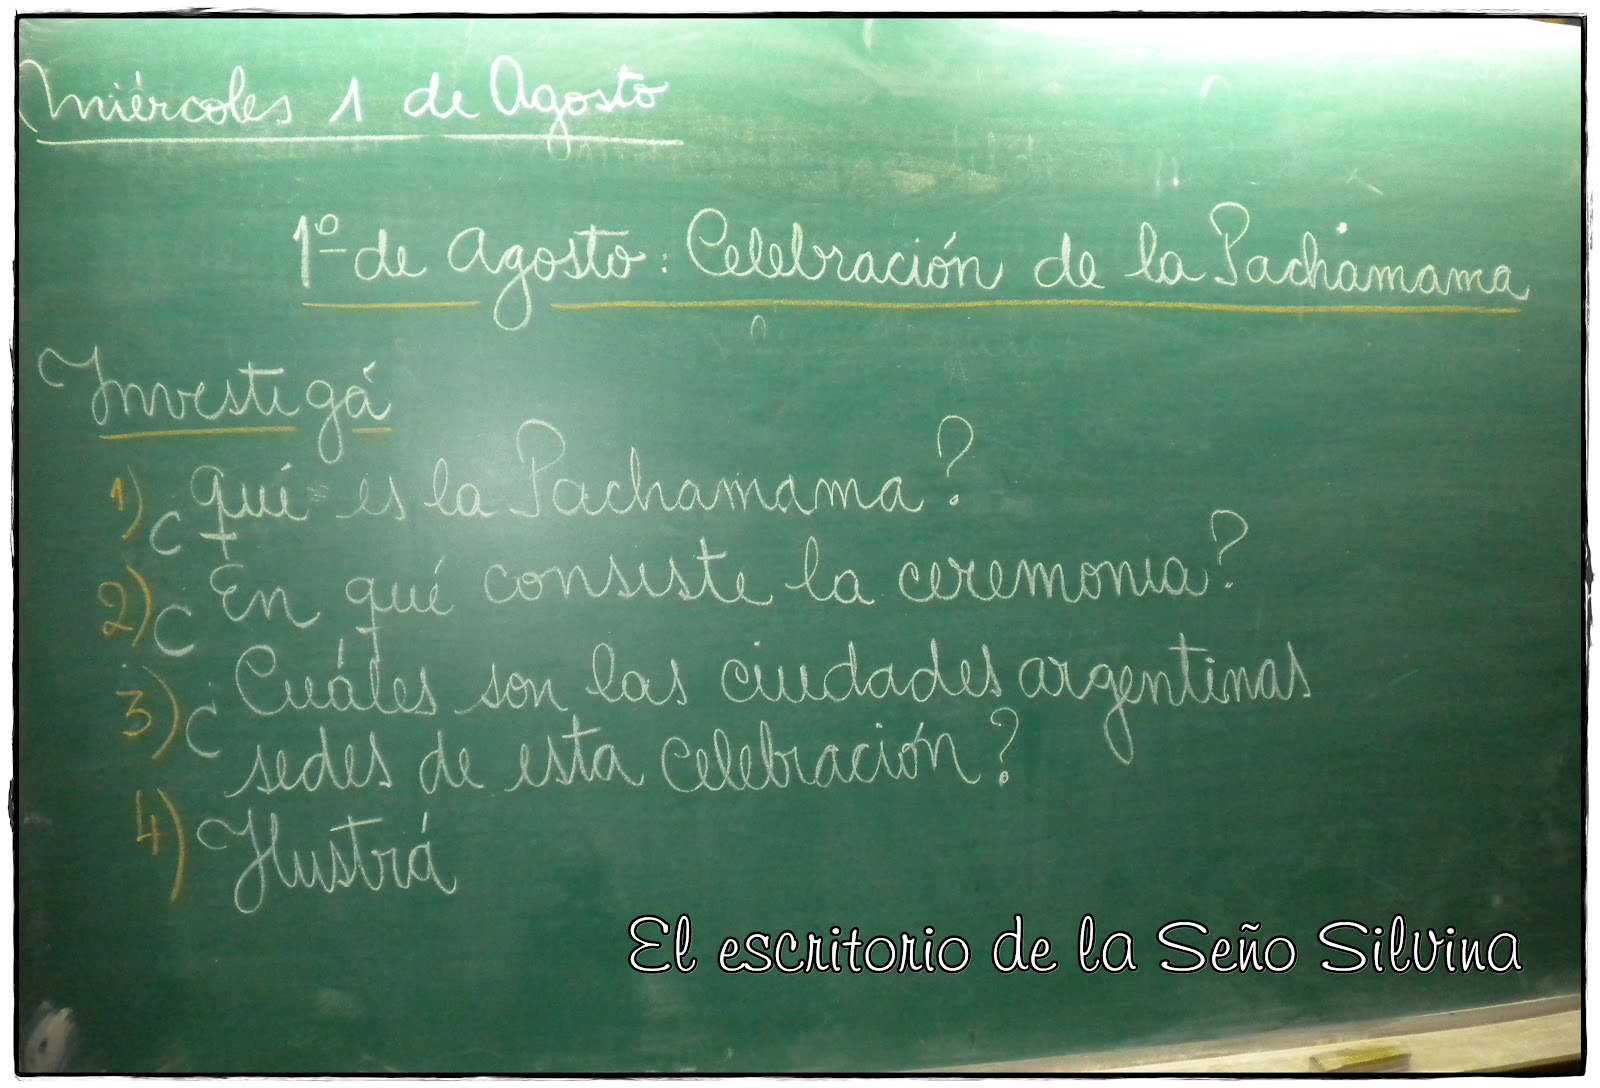 Miércoles 1 de Agosto
1º de Agosto: Celebración de la Pachamama
Investigá
1) ¿Qué es la Pachamama?
2) ¿En qué consiste la ceremonia?
3) ¿Cuáles son las ciudades argentinas
sedes de esta celebración?
4) Ilustrá
El escritorio de la Seño Silvina